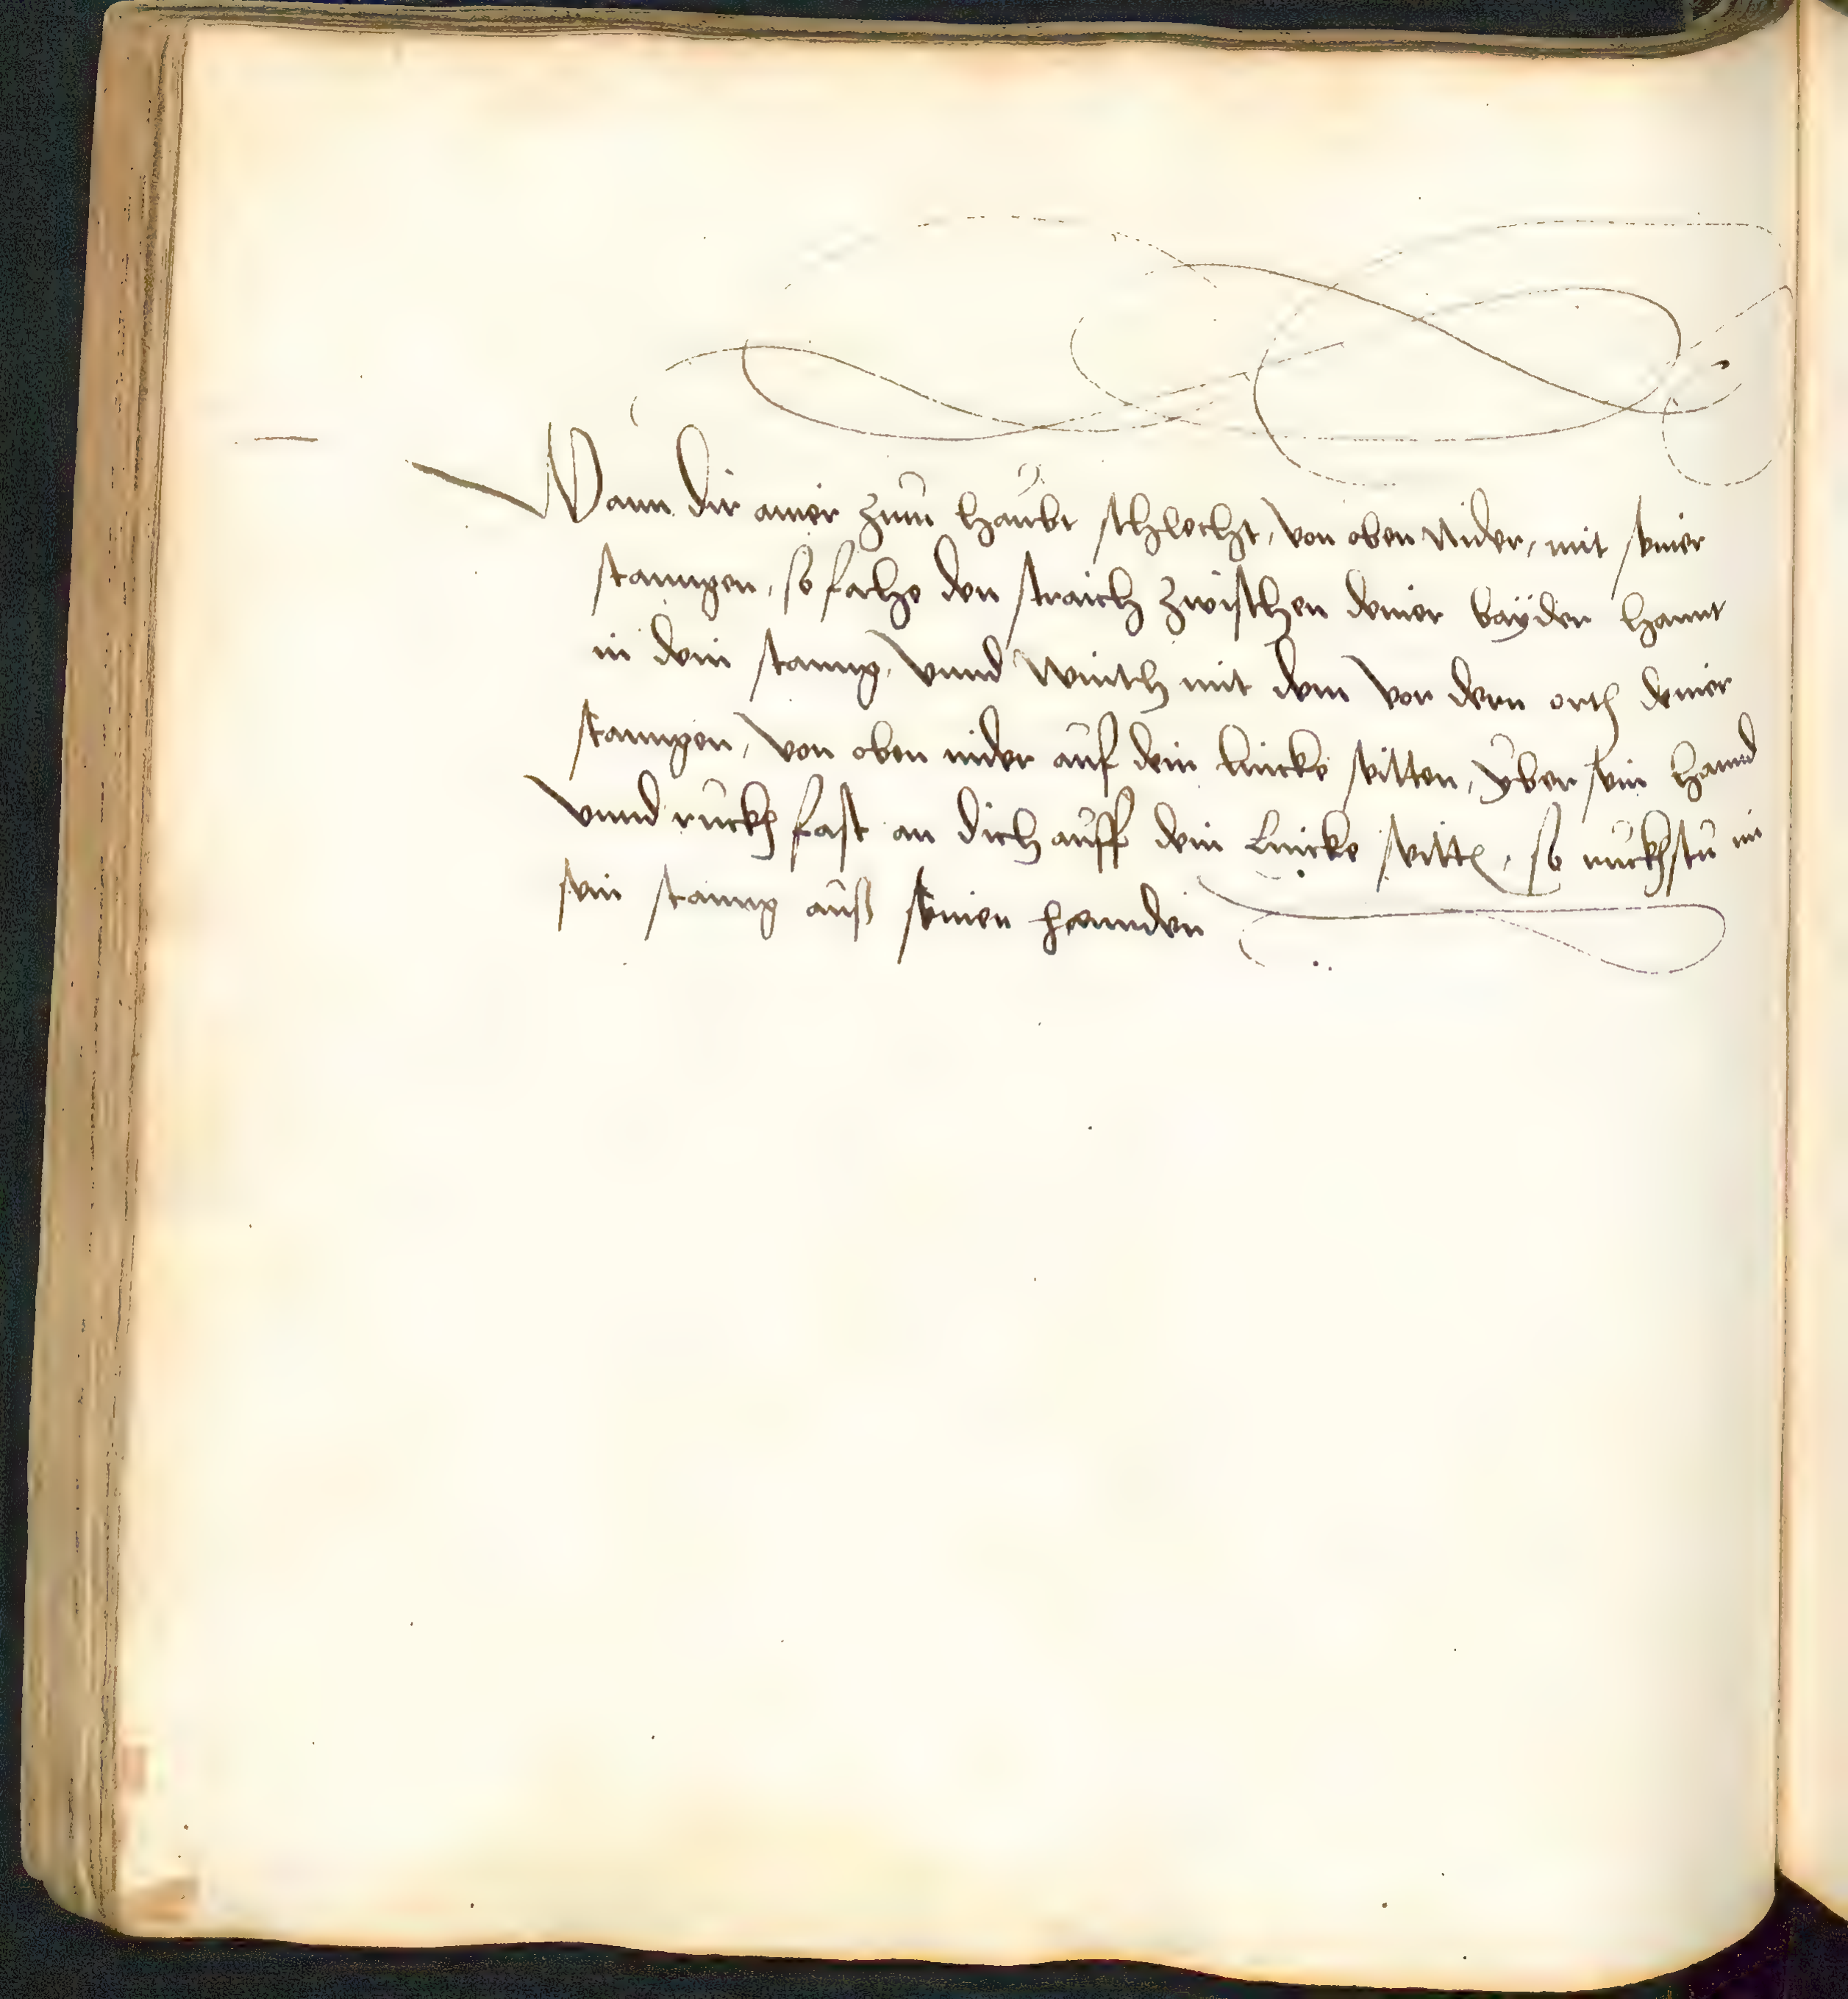 Wann dir ainer zum haubt schlecht, von oben Nider, mit seiner
stanngen, so fahe den straich zwischen deiner bayder hannt
in dein stanng, vnnd Winth mit dem vor dern orth deiner
stanngen, von oben nider auf dein lincke seitten, yber sein hannd
vnnd ruckh fast an dich auff dein Lincke seitte, so ruckhstu im
sein stanng auß seinen hannden